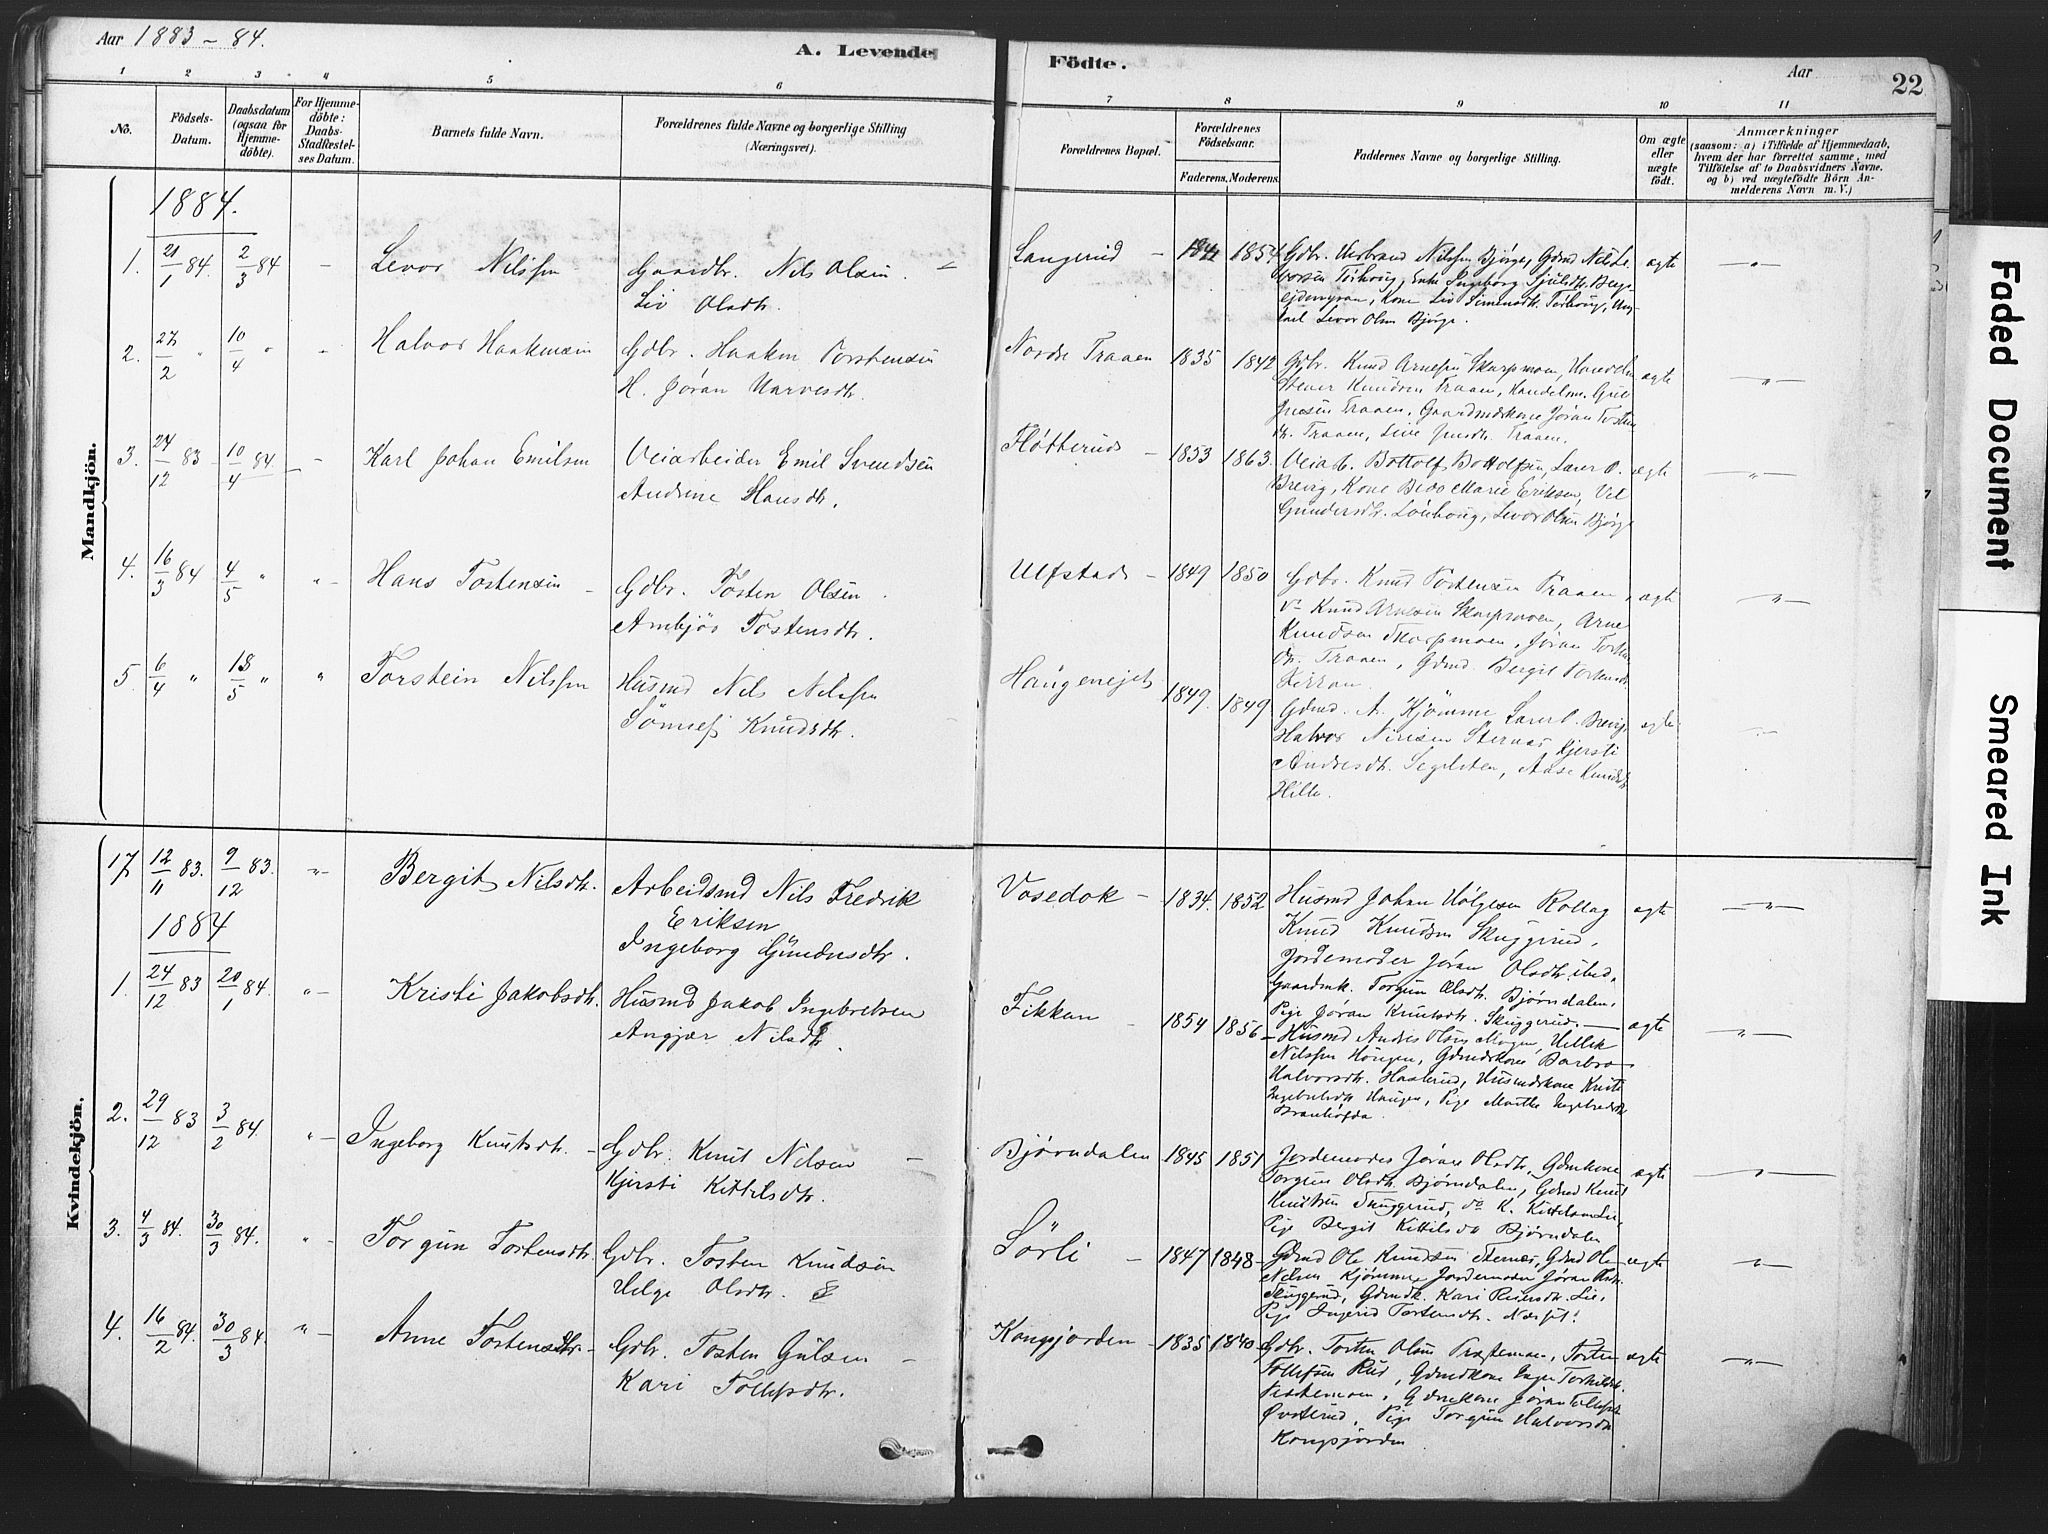 Aar 1883 - 84.
A. Levende Födte.
Aar
22
1 2 3 4 5 6 7 8 9 10 11
No.
Födsels-Datum.
Daabsdatum (ogsaa for Hjemme-döbte).
For Hjemme-döbte: Daabs-Stadfæstel-ses Datum.
Barnets fulde Navn.
Forældrenes fulde Navne og borgerlige Stilling (Næringsvei).
Forældrenes Bopæl.
Forældrenes Födselsaar.
Faderens. Moderens.
Faddernes Navne og borgerlige Stilling.
Om ægte eller uægte födt.
Anmærkninger
(saasom: a) i Tilfælde af Hjemmedaab,
hvem der har forrettet samme, med
Tilföielse af to Daabsvidners Navne.
og b) ved uægtefödte Börn An-
melderens Navn m. V.)
Mandkjön.
1884.
1. 21/1 84. 2/3 84 – Levor Nilssen Gaardbr. Nils Olsen
Liv Olsdtr.
Langerud – 1854 Gdbr. Nilssen Bjørge, Gdmd Nils Le-
vorsen Torhoug, Enke Ingeborg
Kone Liv Simensdtr. Torhoug, Ung-
karl Levor Olsen Bjørge.
ægte – " –
2. 27/2 " 10/4 " Halvor Haakensen Gdbr. Haaken Torstensen
H. Jøran Narvesdtr.
Nordre Traaen 1835 1842 Gdbr. Knud Arnesen Skarpmoen,
Knudsen Traaen, Handelsm.
Traaen, Gaardmdskone Jøran Tosten
dtr. Traaen, Live Traaen.
ægte – " –
3. 24/12 83 10/4 84 – Karl Johan Emilsen Veiarbeider Emil Svendsen
Andrine Hansdtr.
Fløtterud – 1853 1863. Veiarb. Bottolf Bottolfsen, Lærer O.
Brevig, Kone Marie Eriksen,
Gundersdtr. Levor Olsen Bjørge
ægte – " –
4. 16/3 84 4/5 " " Hans Tostensen – Gdbr. Tosten Olsen.
Ambjør Tostensdtr.
Ulfstad – 1849 1850 Gdbr. Knud Tostensen Traaen,
do Knud Arnesen Skarpmoen, Arne
Knudsen Skarpmoen, Jøran Tosten
dtr. Traaen, Gdmd. Bergit Tostensdtr.
Fikkan.
ægte – " –
5. 6/4 " 18/5 " " Torstein Nilssen Husmd Nils Nilssen
Knudsdtr.
Haugeneiet 1849. 1849 Gdmd. A. Kjømme Lærer O. Brevig,
Halvor Nilssen Sternes Kjersti
Andresdtr. Aase Knudsdtr.
Hille.
ægte
Kvindekjön.
17 12/11 83. 9/12 83. " Bergit Nilsdtr. Arbeidsmd Nils Fredrik
Eriksen
Ingeborg Gundersdtr.
Vosedok – 1834. 1852 Husmd Johan Helgesen Rollag
Knud Knudsen Skuggerud,
Jordemoder Jøran Olsdtr. ibed.
Gaardmk. Torgun Olsdtr. Bjørndalen,
Pige Jøran Knutsdtr. Skuggerud.
ægte – " –
1884
1. 24/12 83 20/1 84. " – Kristi Jakobsdtr. Husmd Jakob Ingebretsen
Angjær Nilsdtr.
Fikkan – 1854 1856 – Husmd Andres Olsen Mogen, Ellik
Nilssen Haugen, Gdmdskone Barbro
Halvorsdtr. Haslerud, Husmdskone Kristi
Ingebretsdtr. Haugen, Pige Marthe Ingebretsdtr.
ægte – " –
2. 29/12 83 3/2 84. " – Ingeborg Knutsdtr. – Gdbr. Knut Nilsen –
Kjersti Kittilsdtr.
Bjørndalen 1845 1851 Jordemoder Jøran Olsdtr, Gdmkone
Torgun Olsdtr. Bjørndalen, Gdmd Knut
Knutsen Skuggerud, do K. Kittilsen Lie,
Pige Bergit Kittilsd Bjørndalen
ægte – " –
3. 4/3 84. 30/3 84. " – Torgun Tostensdtr. Gdbr. Tosten Knudsen
Helge Olsdtr.
Sörli – 1847 1848 – Gdmd Ole Knudsen Sternes, Gdmd Ole
Nilsen Kjømme, Jordemoder Jøran Olsdtr.
Skuggerud, Gdmdk. Kari Reiersdtr. Lie,
Pige Ingerid Tostensdtr.
ægte – " –
4. 16/2 84. 30/3 84. " – Anne Tostensdtr. – Gdbr. Tosten Gulsen –
Kari Tollefsdtr.
Kongsjorden – 1835 1840 – Gdbr. Tosten Olsen Prestemoen, Tosten
Tollefsen Rud, Gdmdkone Inger Torkildsdtr.
Prestemoen, Gdmdkone Jøran Tollefsdtr.
Øvsterud, Pige Torgun Halvorsdtr
Kongsjorden.
ægte – " –
Faded Document
Smeared Ink